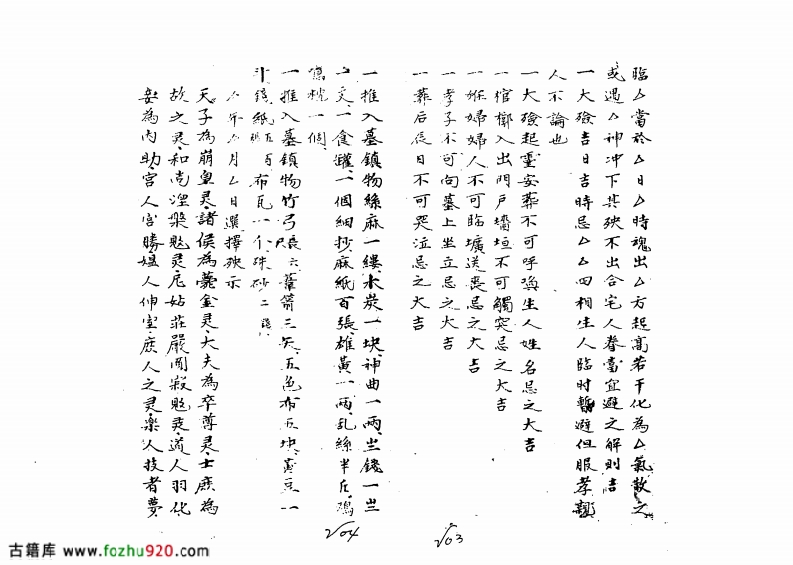 臨厶當於厶日厶時魂出厶方起高若干化為厶氣散之
或遇厶神冲下其殃不出合宅人眷當宜避之解則吉
一大殮吉日吉時忌厶厶四相生人臨时暫避但服孝親
人不論也
一大殮起靈安葬不可呼喚生人姓名忌之大吉
一棺槨入出門戶墻垣不可觸突忌之大吉
一妊婦婦人不可臨壙送喪忌之大吉
一孝子不可向墓上坐立忌之大吉
一葬后辰日不可哭泣忌之大吉
一推入墓鎮物絲麻一縷木炭一块神曲一兩
文一食罐一個細抄麻紙百張雄黃一兩乱絲半斤鸡
鳴枕一個
一推入墓鎮物竹弓一張葦箭三矢五色布五块黃豆一
斗錢紙百布瓦一个硃砂二錢
厶年厶月厶日選擇殃示
天子為崩皇灵諸侯為薨金灵大夫為卒尊灵士庶為
故之灵和尚涅槃覍灵尼姑莊嚴圓寂覍灵道人羽化
妾為內助宫人宫勝媼人伸室庶人之灵樂人技者夢
203
204
古籍库 www.fozhu920.com